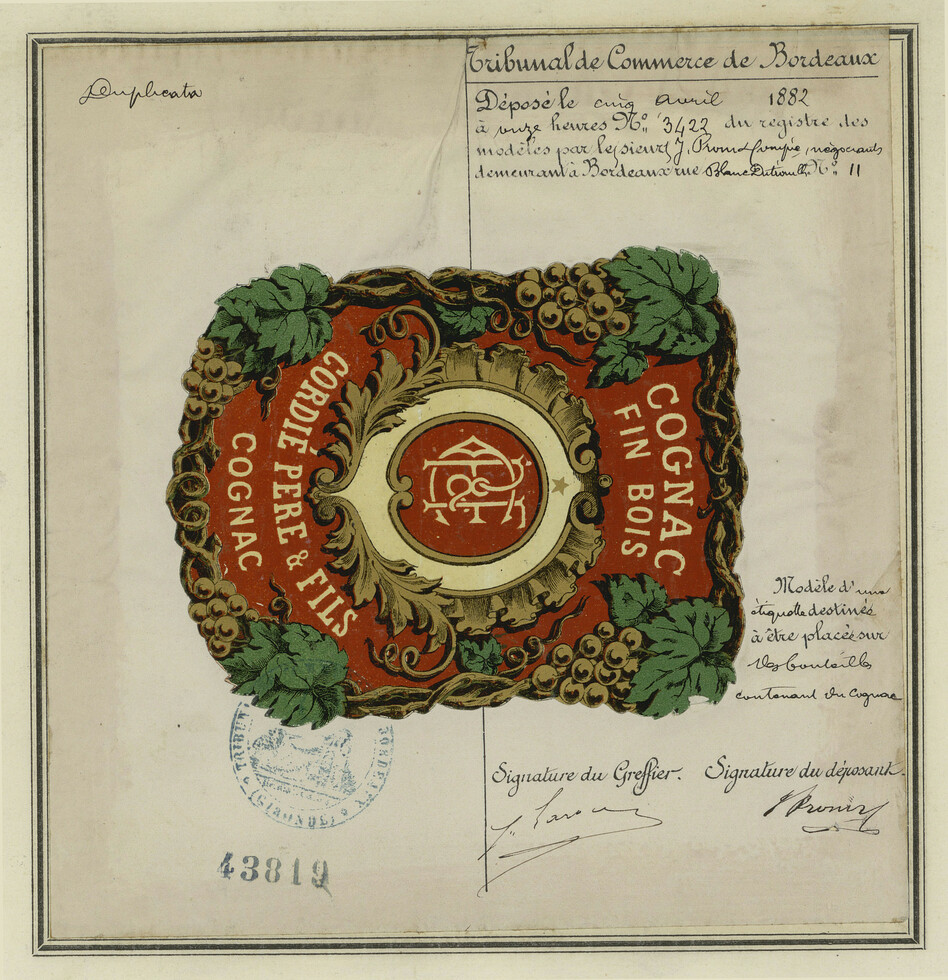 Duplicata
Tribunal de Commerce de Bordeaux
Déposé le cinq avril 1882
à onze heures No. 3422 du registre des
modèles par les sieurs J. Prom & Compie, négociants
demeurant à Bordeaux rue Blanc Dutrouilh No. 11
COGNAC
FIN BOIS
CORDIÉ PERE & FILS
COGNAC
Modèle d'une
étiquette destinée
à être placée sur
des bouteilles
contenant du Cognac
Signature du Greffier. Signature du déposant.
TRIBUNAL
BORDEAUX
(GIRONDE)
43819